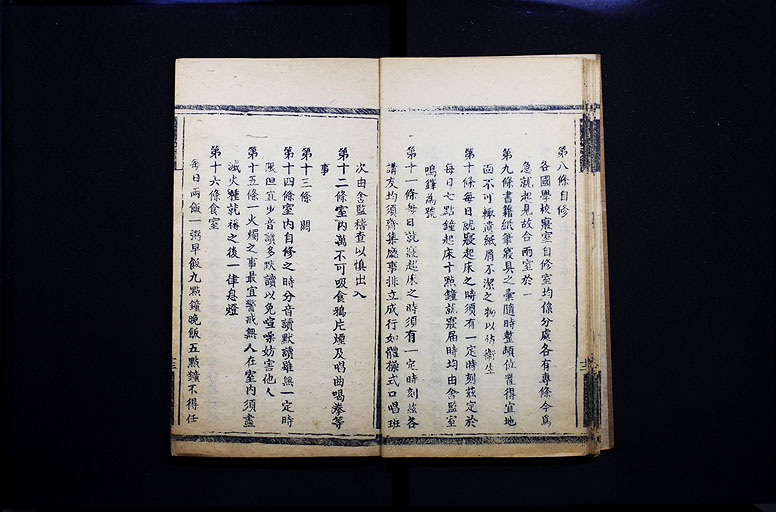 第八條自修
各國學校寢室自修室均係分處各有專條今為
急就起見故合兩室於一
第九條書籍紙筆寢具之彙隨時整頓位置得宜地
面不可輒遺紙屑不潔之物以防衛生
第十條每日就寢起床之時須有一定時刻茲定於
每日七點鐘起床十點鐘就寢屆時均由舍監室
鳴鐸為號
第十一條每日就寢起床之時須有一定時刻茲各
講友均須齊集廳事排立成行如體操式口唱班
次由舍監稽查以慎出入
第十二條室內萬不可吸食鴉片煙及唱曲喝拳等
事
第十三條 闕
第十四條室內自修之時分音讀默讀雖無一定時
限但宜少音讀多默讀以免喧噪妨害他人
第十五條一火燭之事最宜警戒無人在室內須盡
滅火種就褥之後一律息燈
第十六條食室
每日兩飯一粥早飯九點鐘晚飯五點鐘不得任